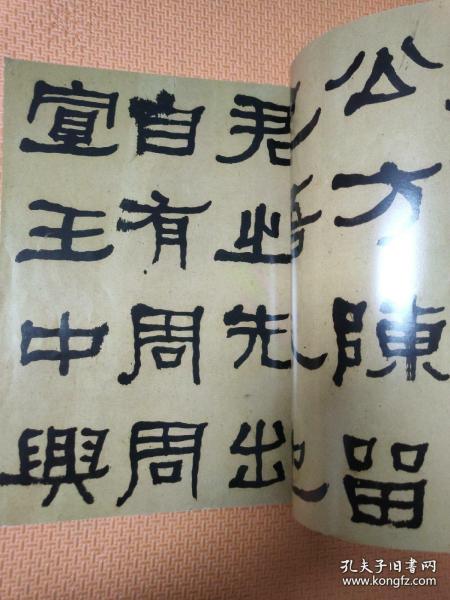 公方陳留
君之先出
自有周周
宣王中興
孔夫子旧书网
www.kongfz.com